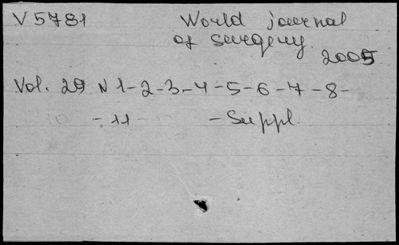 V 5781 World journal
of surgery
2005
Vol. 29 N 1-2-3-4-5-6-7-8-
- 11 - Suppl.